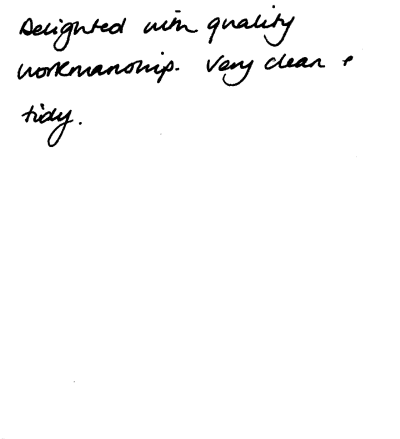 Delighted with quality
workmanship. Very clean +
tidy.